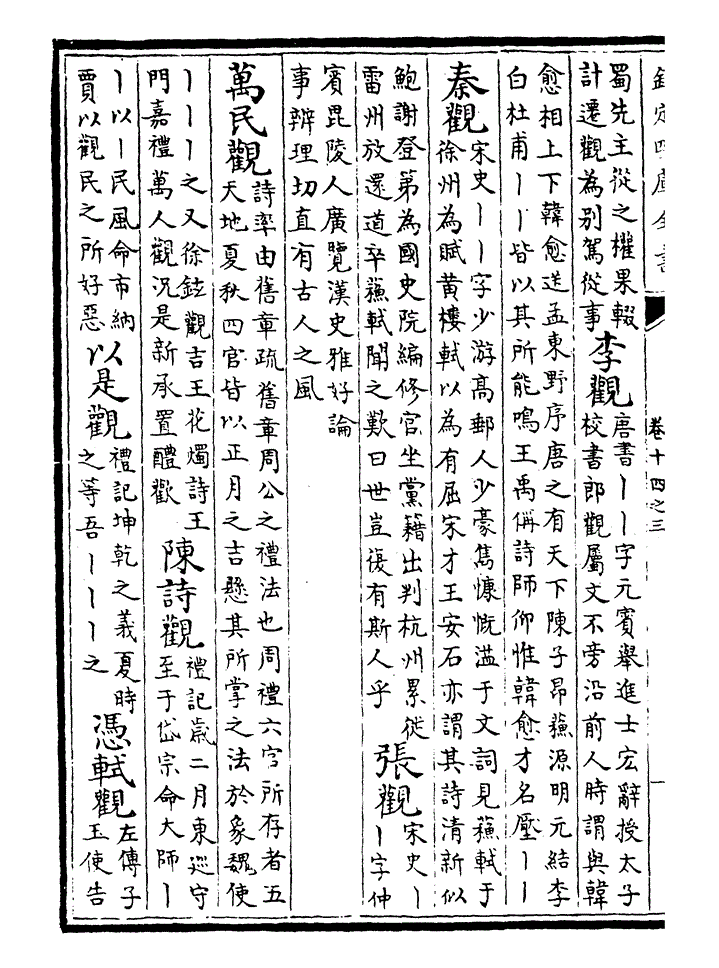 欽定四庫全書
卷十四之三
一
蜀先主從之權果輟
計遷觀為別駕從事
李觀
唐書丨丨字元賓舉進士宏辭授太子
校書郎觀屬文不旁沿前人時謂與韓
愈相上下韓愈送孟東野序唐之有天下陳子昂蘇源明元結李
白杜甫丨丨皆以其所能鳴王禹偁詩師仰惟韓愈才名壓丨丨
秦觀
宋史丨丨字少游高郵人少豪雋慷慨溢于文詞見蘇軾于
徐州為賦黄樓軾以為有屈宋才王安石亦謂其詩清新似
鮑謝登第為國史院編修官坐黨籍出判杭州累徙
雷州放還道卒蘇軾聞之歎曰世豈復有斯人乎
張觀
宋史丨
丨字仲
賓毘陵人廣覽漢史雅好論
事辨理切直有古人之風
萬民觀
詩率由舊章疏舊章周公之禮法也周禮六官所存者五
天地夏秋四官皆以正月之吉懸其所掌之法於象魏使
丨丨丨之又徐鉉觀吉王花燭詩王
門嘉禮萬人觀況是新承置醴歡
陳詩觀
禮記歲二月東廵守
至于岱宗命大師丨
丨以丨民風命市納
賈以觀民之所好惡
以是觀
禮記坤乾之義夏時
之等吾丨丨丨之
憑軾觀
左傳子
玉使告